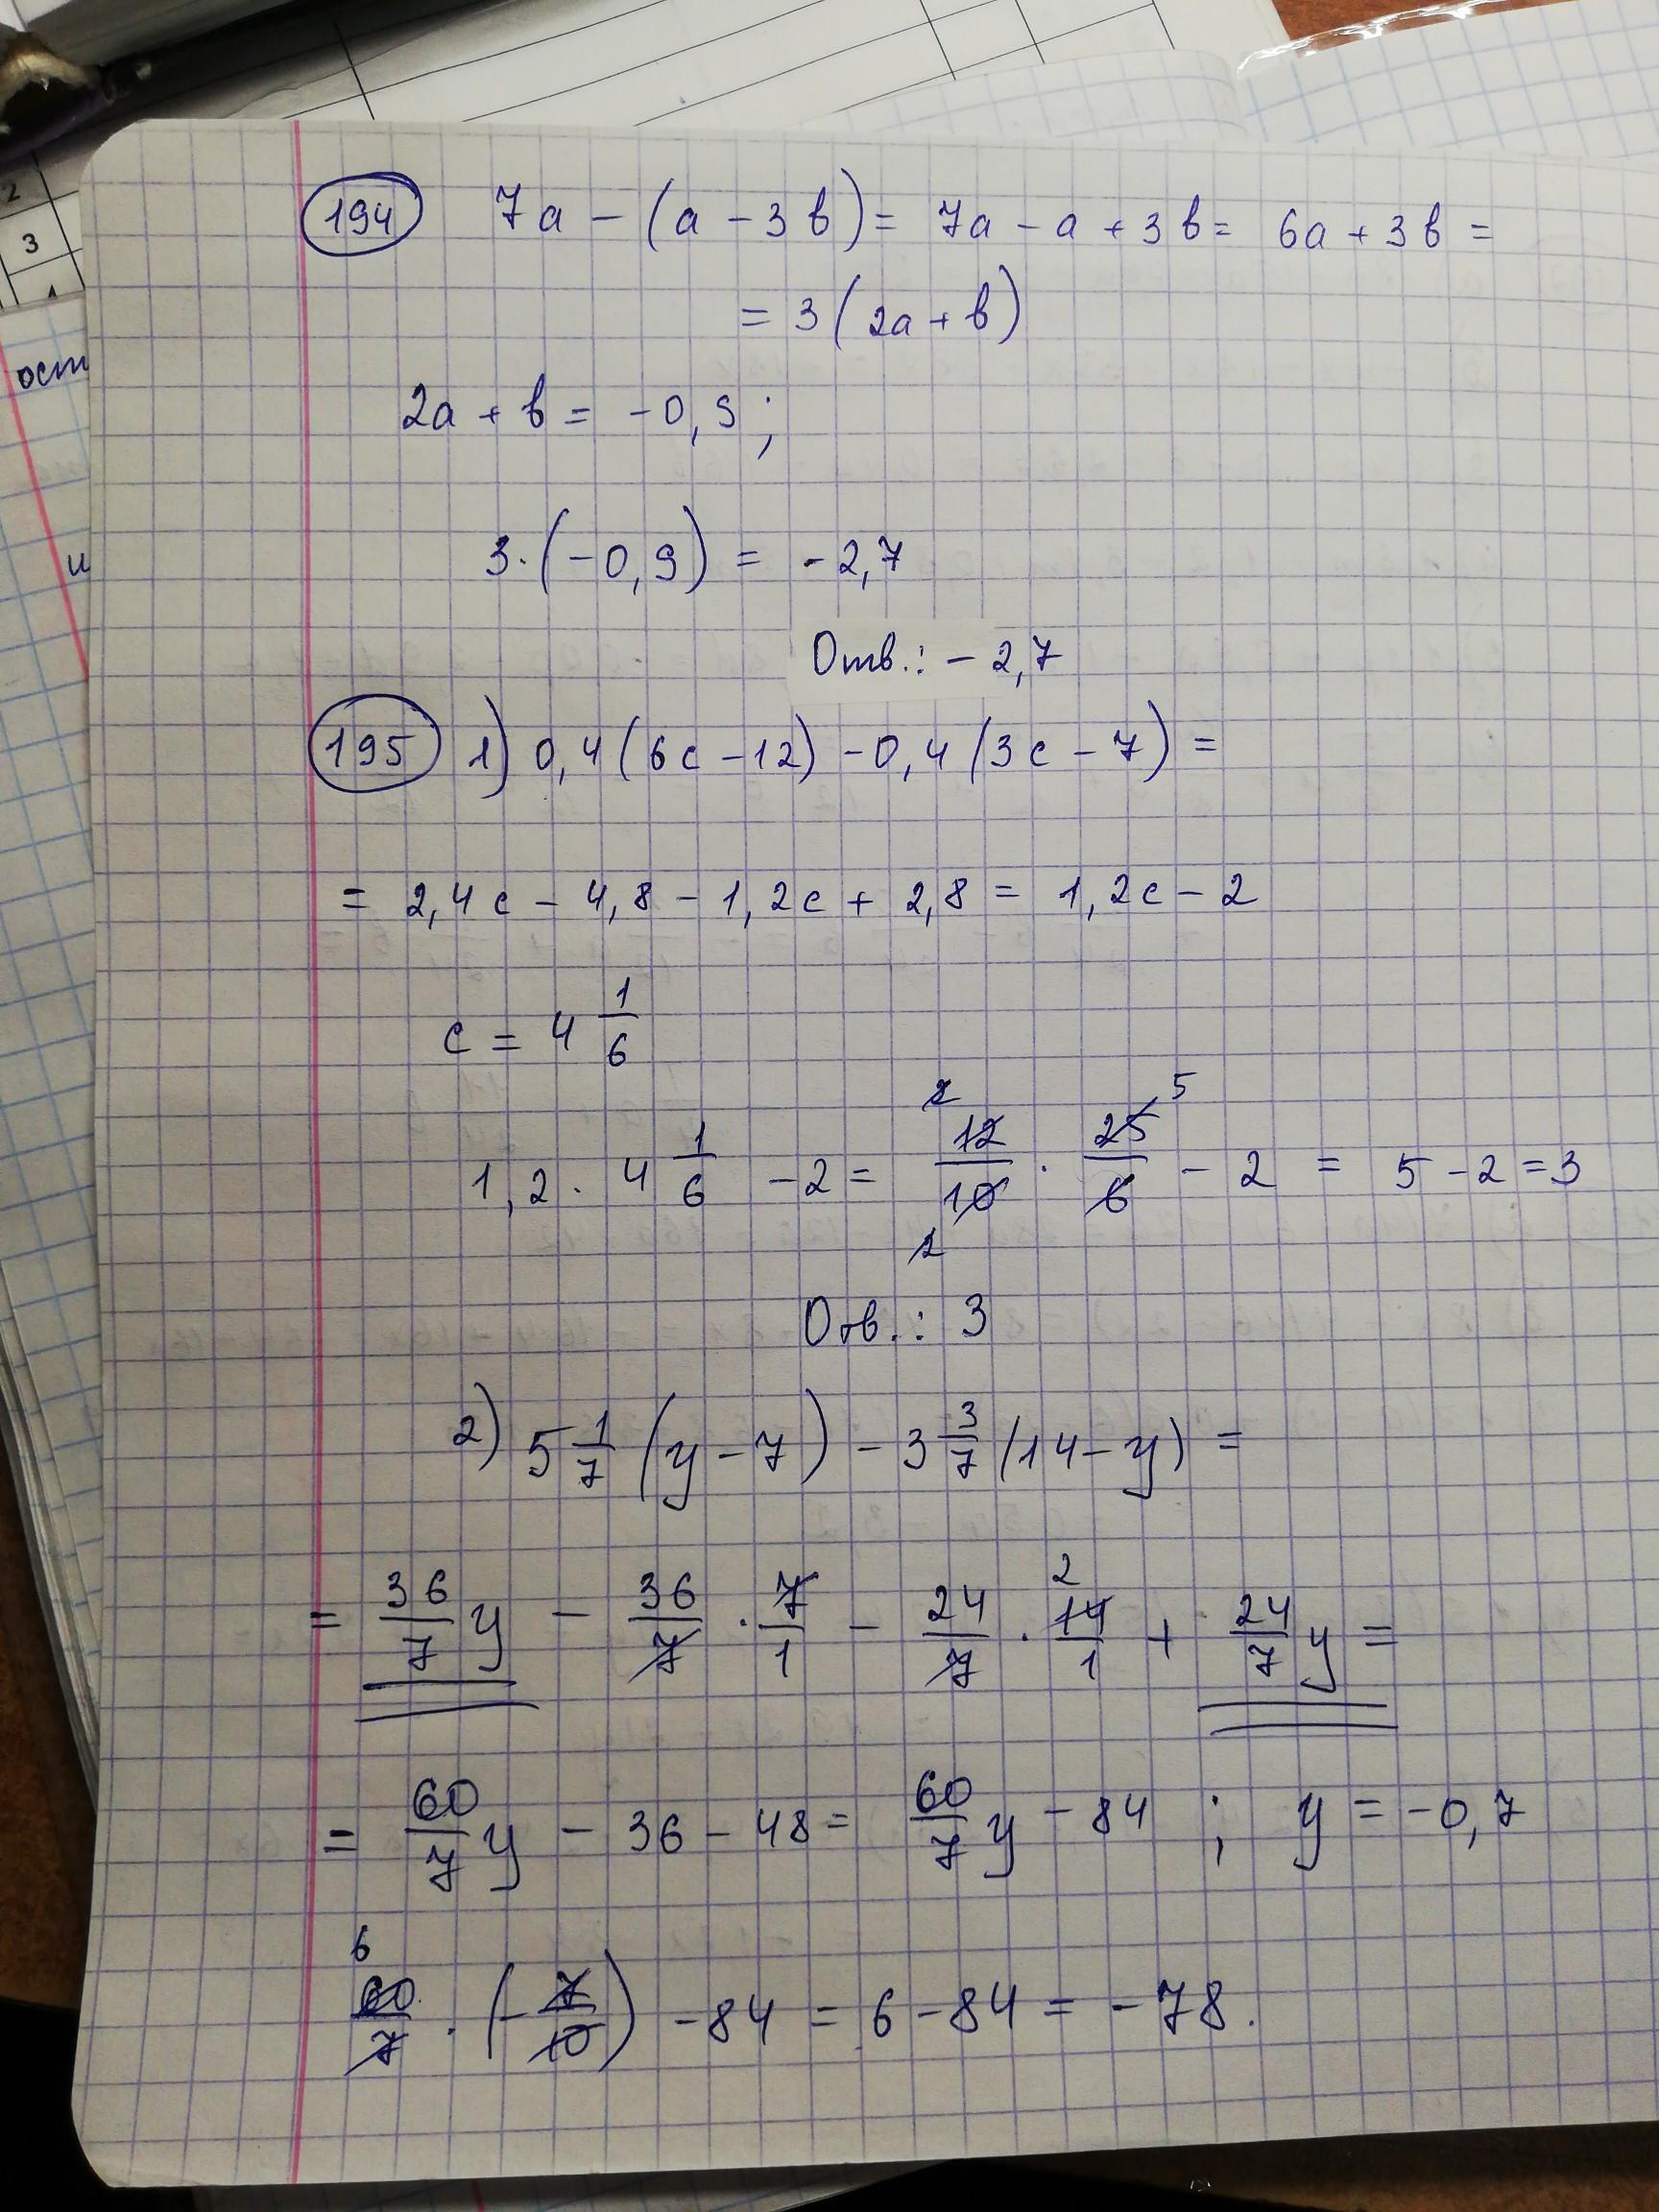 2
3
4
ост
и
194 7a - (a - 3b) = 7a - a + 3b = 6a + 3b =
= 3(2a + b)
2a + b = -0,9;
3·(-0,9) = -2,7
Отв.: -2,7
195 1) 0,4(6c - 12) - 0,4(3c - 7) =
= 2,4c - 4,8 - 1,2c + 2,8 = 1,2c - 2
c = 4 1/6
1,2 · 4 1/6 - 2 = 12/10 · 25/6 - 2 = 5 - 2 = 3
2 5
2
Отв.: 3
2) 5 1/7 (y - 7) - 3 3/7 (14 - y) =
= 36/7 y - 36/7 · 7/1 - 24/7 · 14/1 + 24/7 y =
2
= 60/7 y - 36 - 48 = 60/7 y - 84 ; y = -0,7
6
60/7 · (- 7/10) - 84 = 6 - 84 = -78.